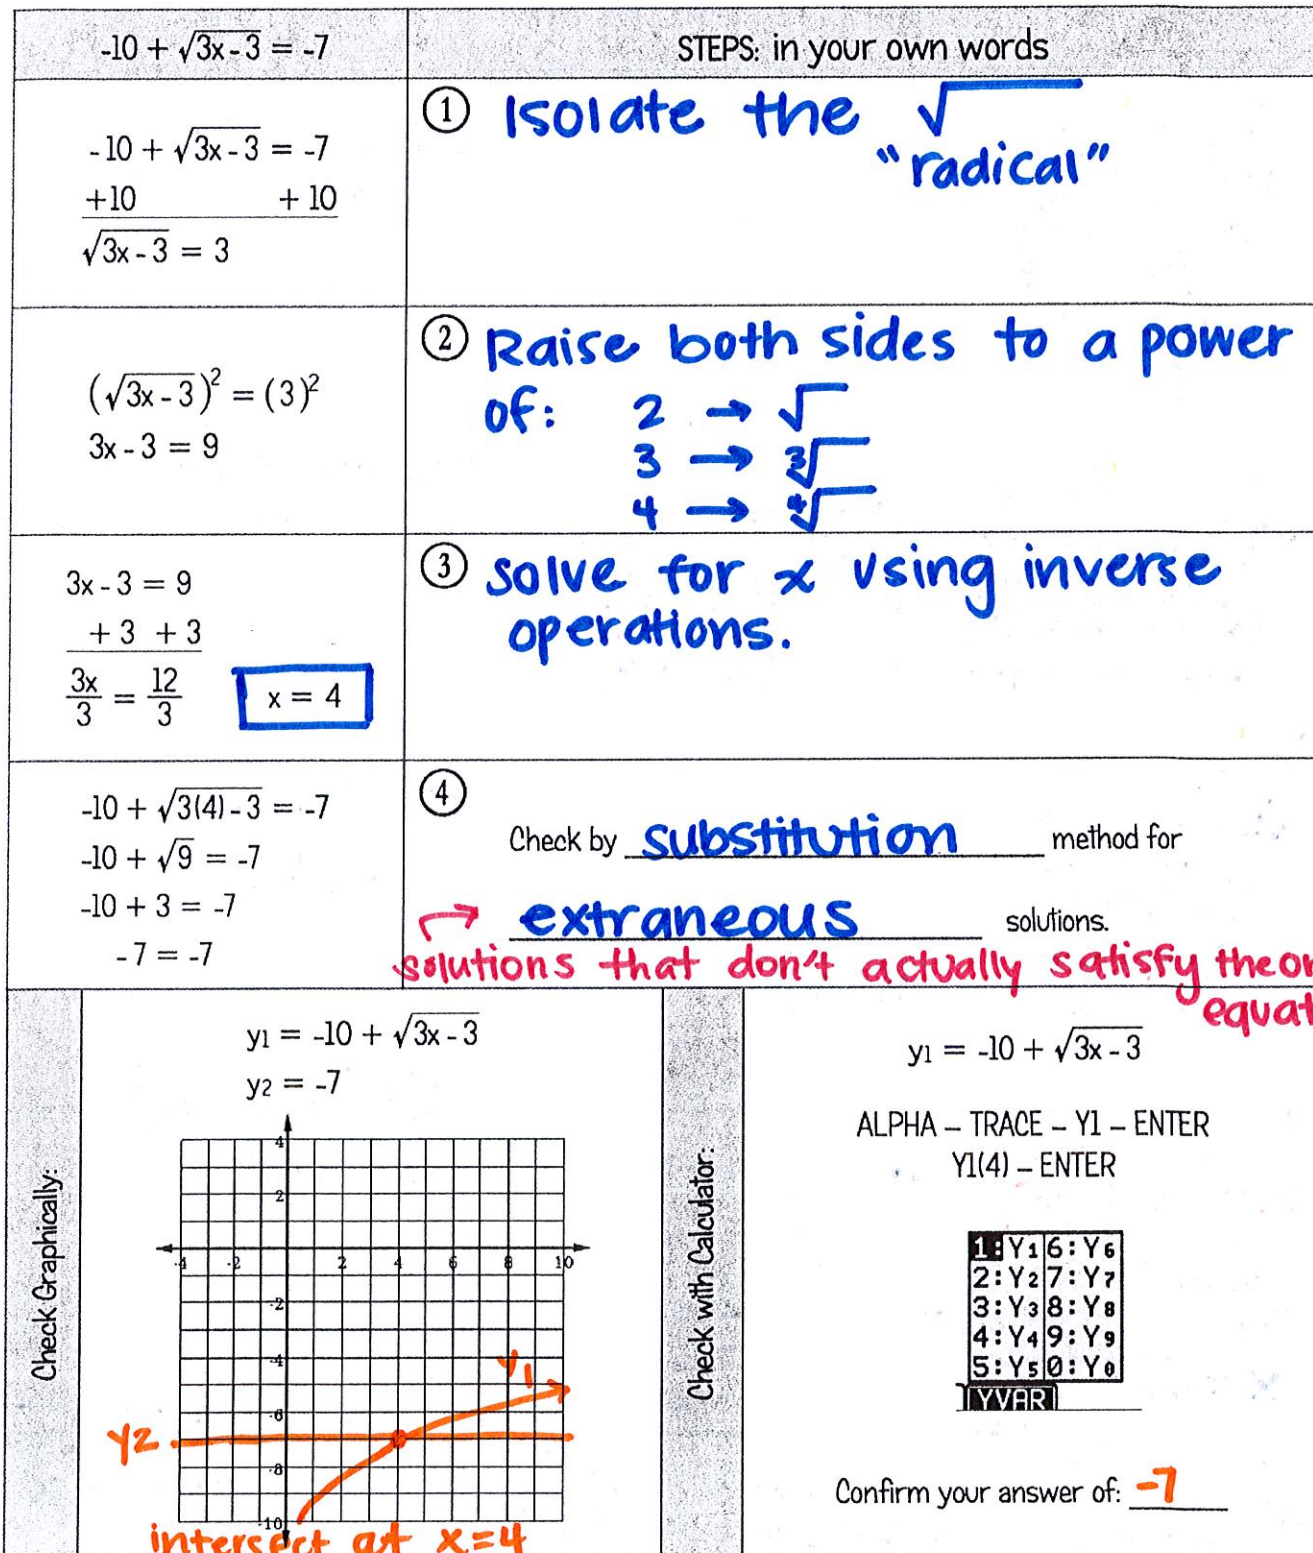 -10 + √3x - 3 = -7
STEPS: in your own words
-10 + √3x - 3 = -7
+10 + 10
√3x - 3 = 3
① Isolate the √
"radical"
(√3x - 3)² = (3)²
3x - 3 = 9
② Raise both sides to a power
of: 2 → √
3 → ∛
4 → ∜
3x - 3 = 9
+ 3 + 3
3x/3 = 12/3
x = 4
③ Solve for x using inverse
operations.
-10 + √3(4) - 3 = -7
-10 + √9 = -7
-10 + 3 = -7
-7 = -7
④
Check by substitution method for
→ extraneous solutions.
solutions that don't actually satisfy the or
equat
Check Graphically:
y1 = -10 + √3x - 3
y2 = -7
4
2
-4 -2 2 4 6 8 10
-2
-4
-6
-8
-10
y1
y2
intersect at x=4
Check with Calculator:
y1 = -10 + √3x - 3
ALPHA – TRACE – Y1 – ENTER
Y1(4) – ENTER
1:Y1 6:Y6
2:Y2 7:Y7
3:Y3 8:Y8
4:Y4 9:Y9
5:Y5 0:Y0
YVAR
Confirm your answer of: -7